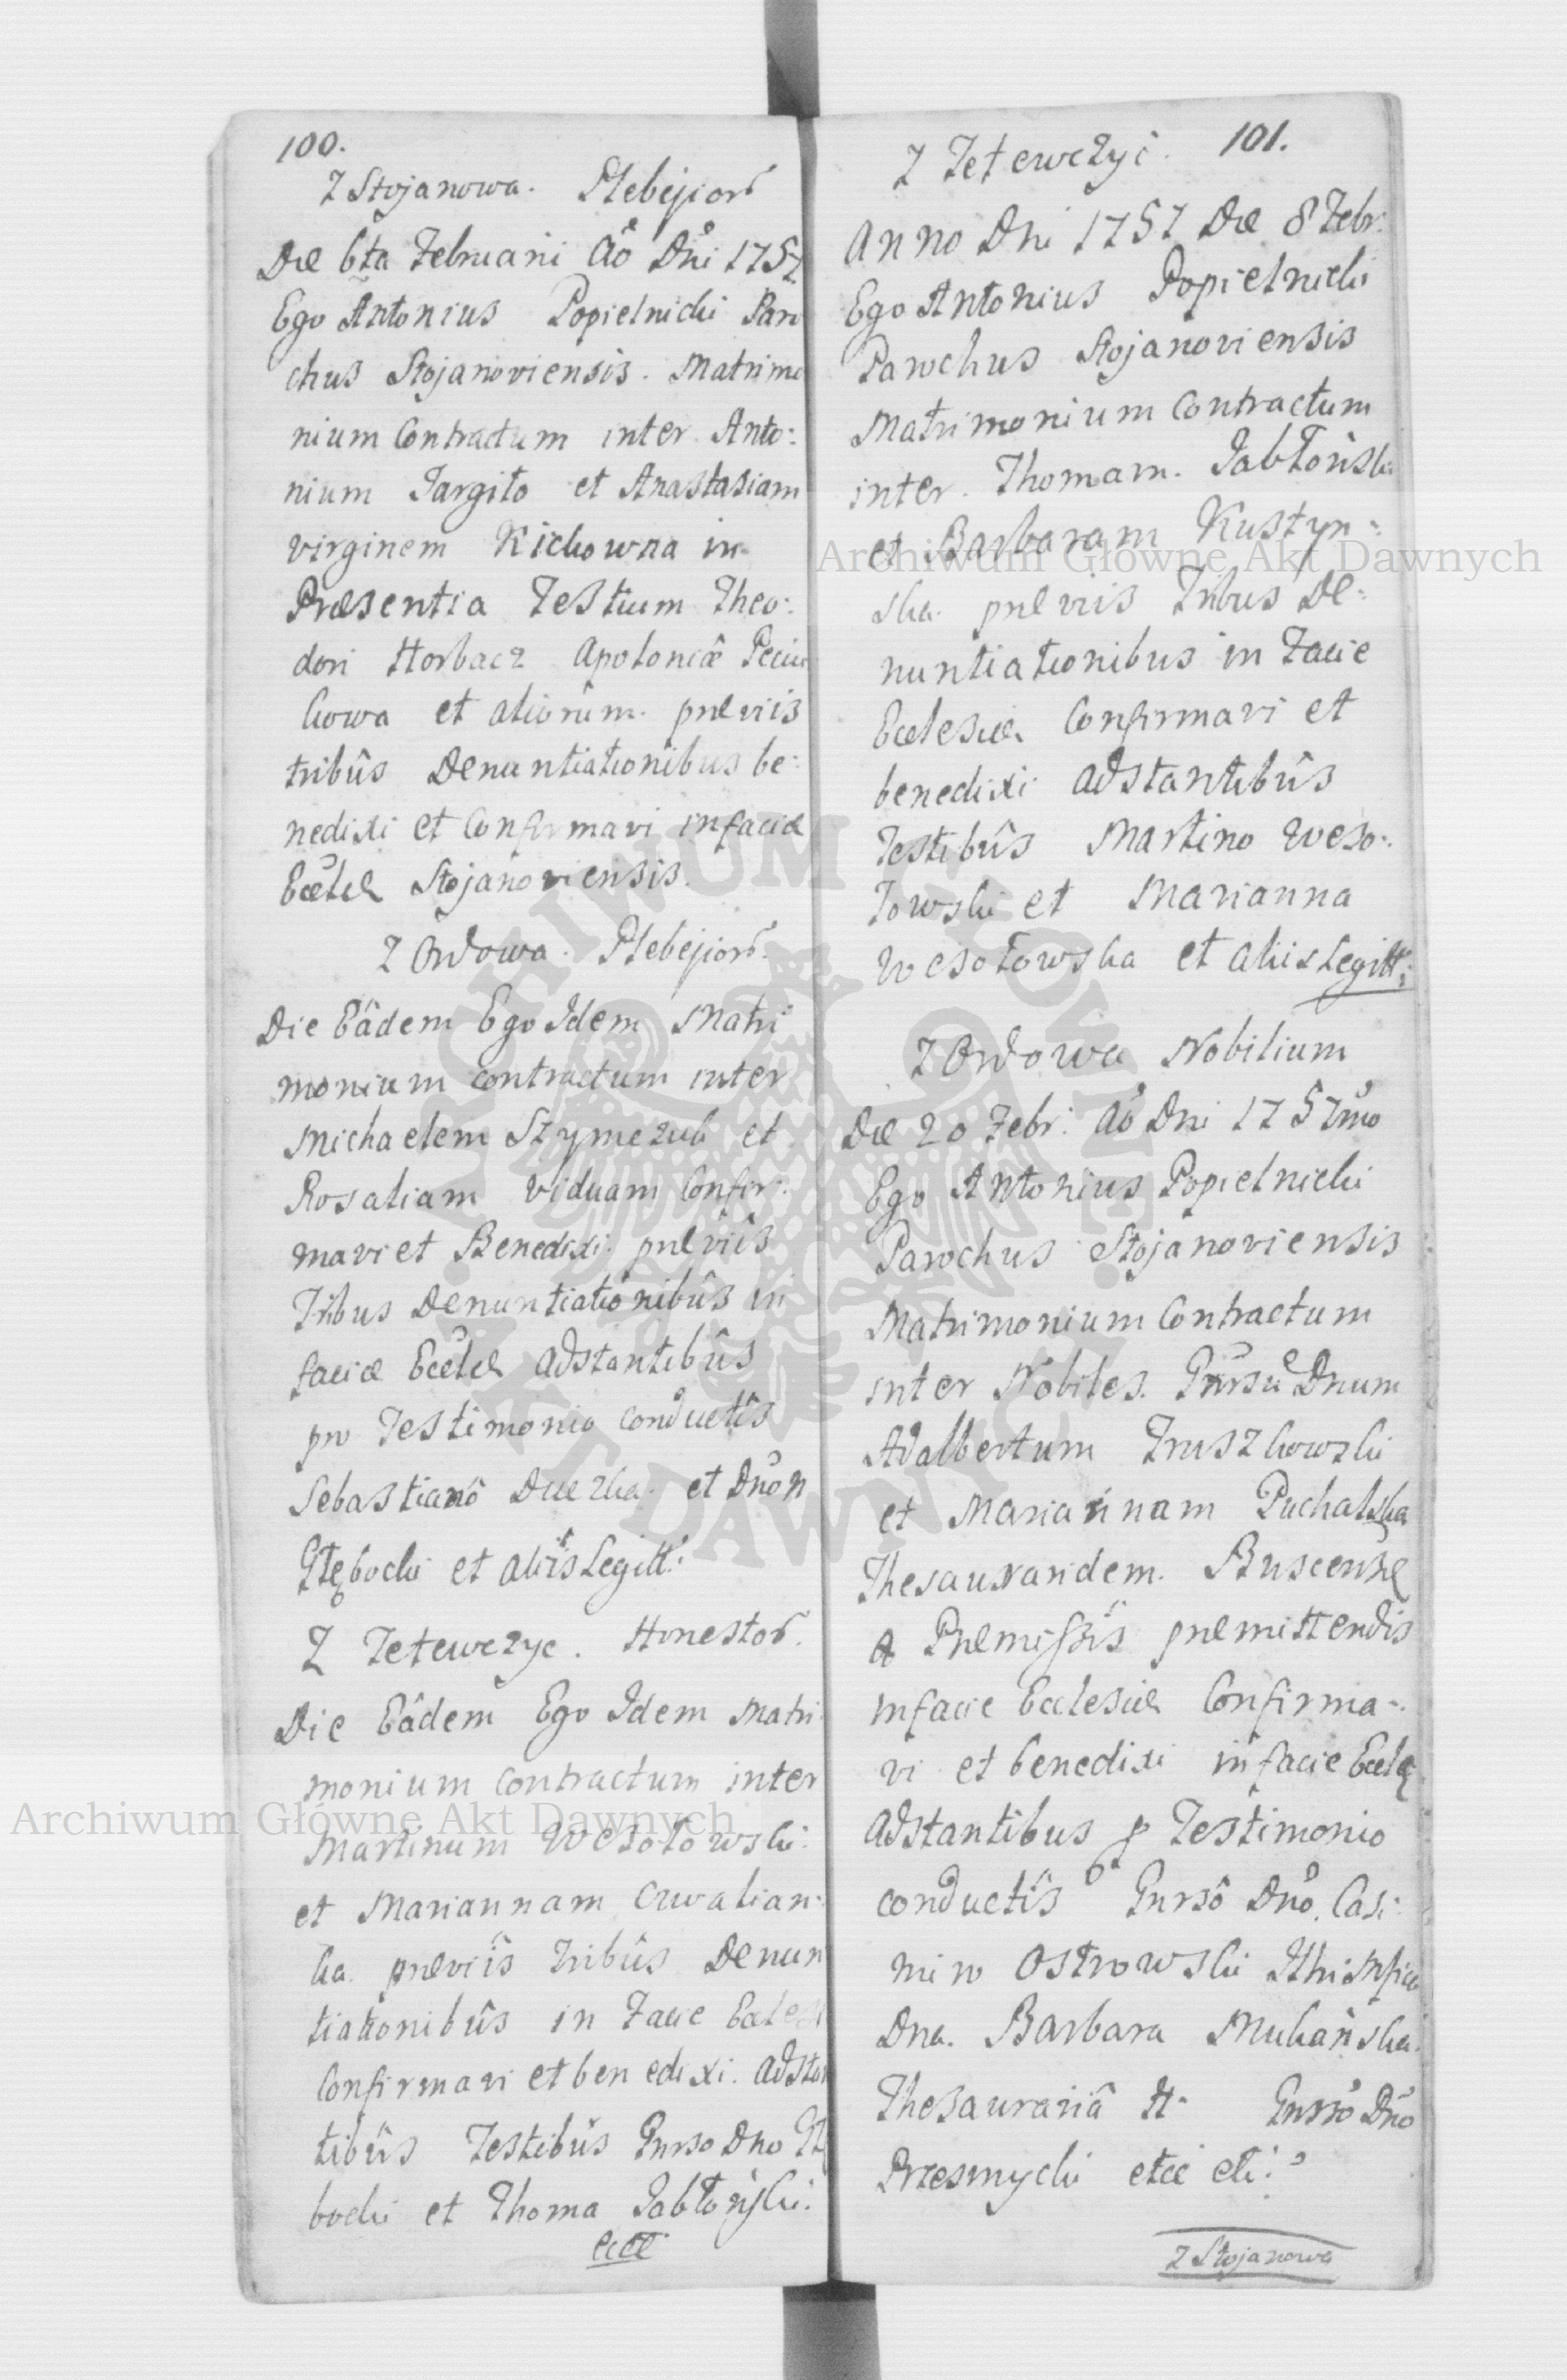 100.
Z Stojanowa. Plebejor
Die 6ta Februarii Aõ Dni 1757
Ego Antonius Popielnicki Paro
chus Stojanoviensis. Matrimo
nium Contractum inter Anto:
nium Jargiło et Anastasiam
virginem Kickowna in
Præsentia Testium Theo:
dori Horbacz Apoloniæ
kowa et aliorum. præviis
tribûs Denuntiationibus be:
nedixi et Confirmavi in facie
Ecclæ Stojanoviensis.
Z Ordowa. Plebejor
Die Eâdem Ego Idem Matri
monium contractum inter
Michaelem Szymczuk et
Rosaliam viduam Confir:
mavi et Benedixi præviîs
Tribus Denuntiationibûs in
facie Ecclæ Adstantibûs
pro Testimonio conductîs
Sebastianô et Dnõ N
Głębocki et aliîs Legitt:
Z Tetewczyc. Honestor.
Die Eâdem Ego Idem Matri
monium contractum inter
Martinum Wesołowski
et Mariannam
ka præviîs Tribûs Denun
tiationibûs in Facie Eccles
Confirmavi et benedixi. Adstan
tibûs Testibûs Gnrso Dno Głę
bocki et Thoma Jabłoński.
101.
Z Tetewczyc
Anno Dni 1757 Die 8 Febr:
Ego Antonius Popielnicki
Parochus Stojanoviensis
Matrimonium Contractum
inter Thomam Jabłońsk
et Barbaram Kustyn:
ska præviis Tribus De:
nuntiationibus in Facie
Ecclesiæ Confirmavi et
benedixi Adstantibûs
Testibûs Martino Weso:
łowski et Marianna
Wesołowska et aliis Legitt:
Z Ordowa Nobilium
Die 20 Febr: Aõ Dni 1757mo
Ego Antonius Popielnicki
Parochus Stojanoviensis
Matrimonium Contractum
inter Nobiles. Dnum
Adalbertum Truszkowski
et Mariannam Puchalska
Thesaurandem.
Præmissîs præmittendis
in facie Ecclesiæ Confirma:
vi et benedixi in facie Ecclę
Adstantibus p Testimonio
conductîs Gnrsô Dnõ Casi:
miro Ostrowski
Dna. Barbara Mukańska
Thesaurariâ Gnrsõ Dnõ
Przesmycki etcc etc:
Z Stojanowa
Archiwum Główne Akt Dawnych
Archiwum Główne Akt Dawnych
ARCHIWUM GŁÓWNE AKT DAWNYCH